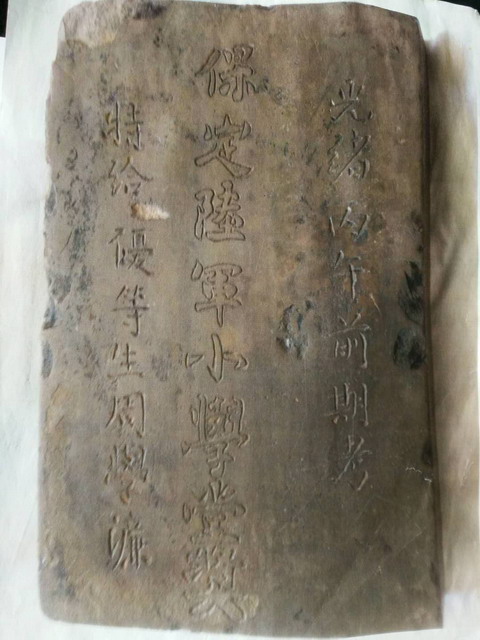 光緒丙午前期考
保定陸軍小學堂獎
特給優等生周學濂